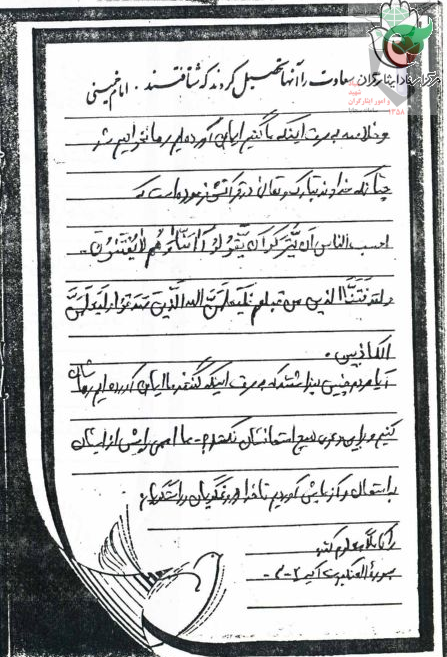 سعادت را آنها تحصیل کردند که شتافتند . امام خمینی
و خلاصه به صرف اینکه ما گفتیم ایمان آورده‌ایم رها نخواهیم شد
چنانکه خداوند تبارک و تعالی در قرآنش فرموده است که
احسب الناس ان یترکوا ان یقولوا آمنا و هم لا یفتنون -
و لقد فتنا الذین من قبلهم فلیعلمن الله الذین صدقوا و لیعلمن
الکاذبین .
آیا مردم چنین پنداشتند که به صرف اینکه گفتند ما ایمان آورده‌ایم رهاشان
کنیم و بر این دعوی هیچ امتحانشان نکنیم - ما اممی را پیش از اینان
به امتحان و آزمایش آوردیم تا خدا دروغگویان و راستگویان
را کاملا معلوم کند
سوره العنکبوت آیه ۲-۳-
مرکز اسناد ایثارگران
شهید
و امور ایثارگران
۱۳۵۸